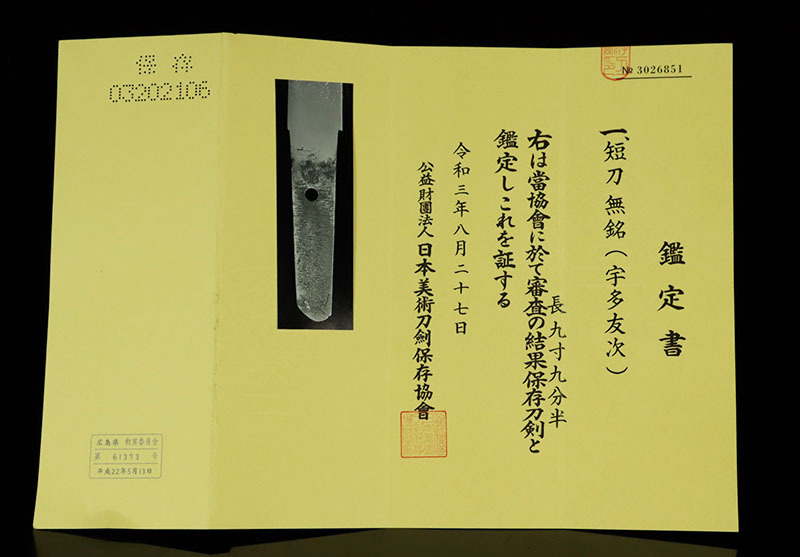 № 3026851
鑑定書
一、短刀 無銘(宇多友次)
長九寸九分半
右は當協會に於て審査の結果保存刀剣と
鑑定しこれを証する
令和三年八月二十七日
公益財團法人日本美術刀劍保存協會
保存
03202106
広島県 教育委員会
第 61373 号
平成22年5月13日